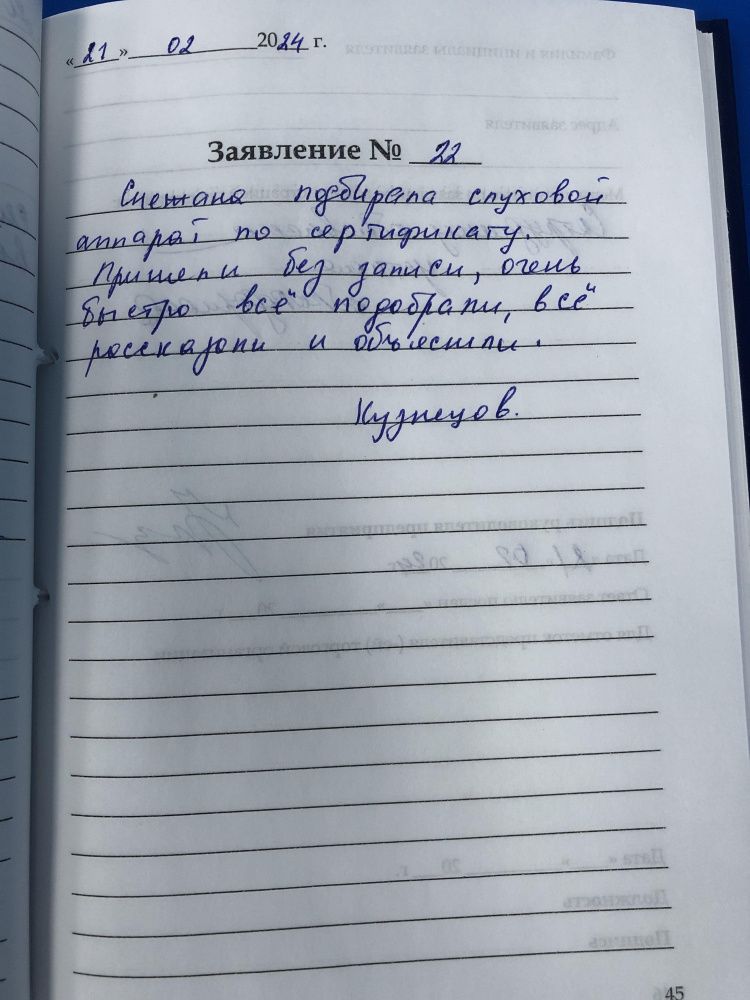 «21» 02 2024 г.
Заявление № 22
Снежана подбирала слуховой
аппарат по сертификату.
Пришли без записи, очень
быстро всё подобрали, всё
рассказали и объяснили.
Кузнецов.
45